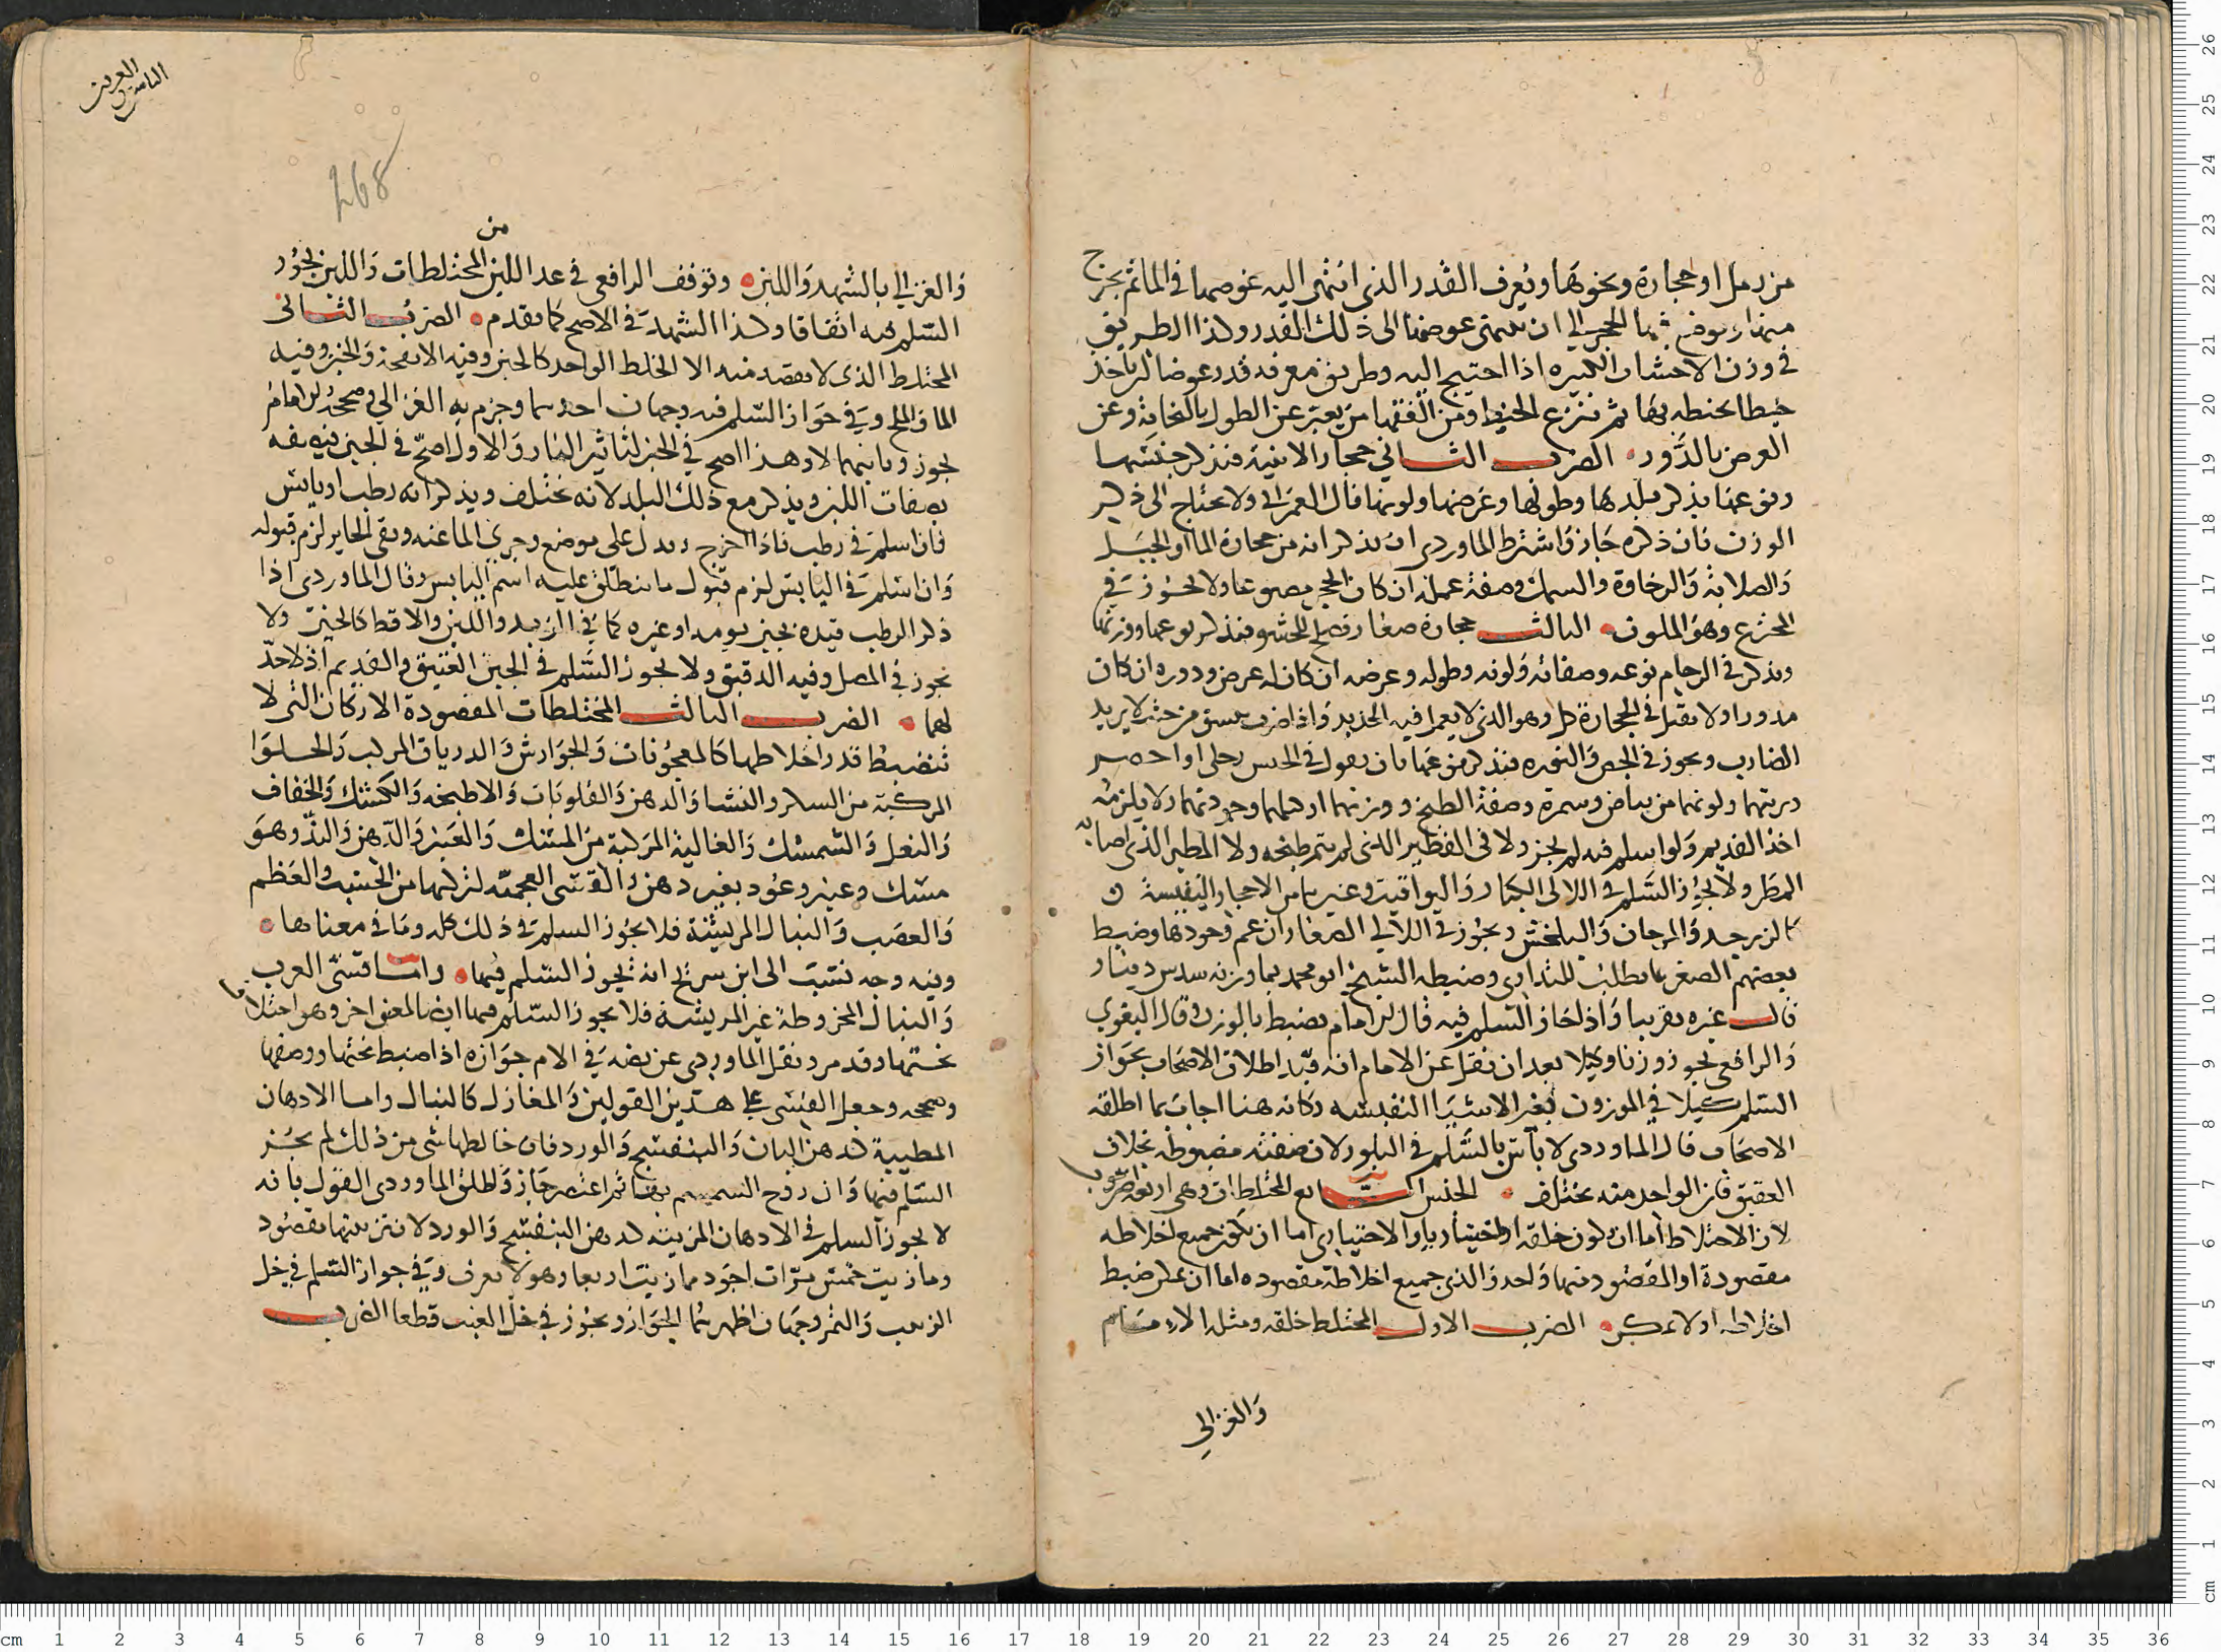 من رمل او حجارة ونحوها ويعرف القدر الذي انتهى اليه غوصها في الماثم يخرج
منها ويوضع فيها الحجر الى ان ينتهى غوصها الى ذلك القدر وكذا الطريق
في وزن الاخشاب الكبيره اذا احتيج اليه وطريق معرفه قدر عرضها ان ياخذ
خيطا يحنطه بها ثم ينزع الخيط ومن الفقها من يعبر عن الطول بالثخانة وعن
العرض بالدور الضرب الثاني حجار الابنية فيذكر جنسها
ونوعها يذكر بلدها وطولها وعرضها ولونها قال العمراني ولا يحتاج الى ذكر
الوزن فان ذكره جاز واشترط الماوردي ان يذكر انه من حجارة الما او الجبل
والصلابة والرخاوة والسمك وصفة عمله ان كان الحجر مصنوعا ولا يجوز في
المجزع وهو الملون الثالث حجارة صغار للحشو فيذكر نوعها ووزنها
ويذكر في الرخام نوعه وصفاته ولونه وطوله وعرضه ان كان له عرض ودوره ان كان
مدورا ولا يقبل في الحجارة كل وهو الذي لا يعمل فيه الحديد واذا ضرب ينشق من حيث لا يريد
الضارب ويجوز في الجص والنوره فيذكر من عمها بان يقول في الجبس
ولونهما من بياض وسمرة وصفة الطبخ ووزنهما او كيلهما وجودتهما ولا يلزمه
اخذ القديم ولو اسلم فيه لم يجز ولا في الفطير الذي لم يتم طبخه ولا المطير الذي اصابه
المطر ولا يجوز السلم في اللالى الكبار واليواقيت وغيرها من الاحجار النفيسة
كالزبرجد والمرجان والبلخش ويجوز في اللالي الصغار ان عم وجودها وضبط
بعضهم الصغر بما يطلب للتداوى وضبطه الشيخ ابو محمد بما وزنه سدس دينار
قال غيره تقريبا واذا جاز السلم فيه قال الامام يضبط بالوزن وقال البغوي
والرافعي يجوز وزنا وكيلا بعد ان نقل عن الامام انه قيد اطلاق الاصحاب بجواز
السلم كيلا في الموزون بغير الاشيا النفيسه وكانه هنا اجاب بما اطلقه
الاصحاب قال الماوردي لا باس بالسلم في البلور لان صفته مضبوطه بخلاف
العقيق فان الواحد منه يختلف الجنس السابع المختلطات وهي اربعة اضرب
لان الاختلاط اما ان يكون خلقه او اختياريا والاختياري اما ان يكون جميع اخلاطه
مقصودة او المقصود منها واحد والذي جميع اخلاطه مقصوده اما ان يمكن ضبط
اخلاطه او لا يمكن الضرب الاول المختلط خلقه ومثله الامام
والغزالي
العرس
268
من
والغزالي بالشهد واللبن وتوقف الرافعي في عد اللبن المختلطات واللبن يجوز
السلم فيه اتفاقا وكذا الشهد في الاصح كما تقدم الضرب الثاني
المختلط الذي لا يقصد منه الا الخلط الواحد كالجبن وفيه الانفحة والخبز وفيه
الما والملح وفي جواز السلم فيه وجهان احدهما وجزم به الغزالي وصححه الامام
يجوز وثانيهما لا وهذا اصح في الخبز لتاثير النار والاول اصح في الجبن فيصفه
بصفات اللبن ويذكر مع ذلك البلد لانه يختلف ويذكر انه رطب او يابس
فان اسلم في رطب فاذا اخرج وبدل على موضع وجرى الما عنه وبقى الجاير لزم قبوله
وان اسلم في اليابس لزم قبول ما ينطلق عليه اسم اليابس وقال الماوردي اذا
ذكر الرطب قيده بجبن يومه او غيره كما في الزبد واللبن والاقط كالجبن ولا
يجوز في المصل وفيه الدقيق ولا يجوز السلم في الجبن العتيق والقديم اذ لا حد
لهما الضرب الثالث المختلطات المقصودة الاركان التي لا
تنضبط قدر اخلاطها كالمعجونات والجوارش والدرياق المركب والحلوا
المركبة من السكر والنشا والدهن والقلوبات والاطبخه والكشك والخفاف
والنعل والشمشك والغالية المركبة من المسك والعنبر والدهن والند وهو
مسك وعنبر وعود بغير دهن والقسى العجميه لتركبها من الخشب والعظم
والعصب والنبال المريشة فلا يجوز السلم في ذلك كله وما في معناها
وفيه وجه نسب الى ابن سريج انه يجوز السلم فيها واما قسى العرب
والنبال المخروطة غير المريشة فلا يجوز السلم فيها ايضا لمعنى اخر وهو اختلاف
نحتها وقد مر ونقل الماوردي عن نصه في الام جوازه اذا ضبط نحتها ووصفها
وصححه وجعل القسى على هذين القولين والمغازل كالنبال واما الادهان
المطيبة كدهن البان والبنفسج والورد فان خالطها شي من ذلك لم يجز
السلم فيها وان روح السمسم بها ثم اعتصر جاز واطلق الماوردي القول بانه
لا يجوز السلم في الادهان المزيته كدهن البنفسج والورد لان تزيينها مقصود
وما زيت خمس مرات اجود مما زيت اربعا وهو لا يعرف وفي جواز السلم في خل
الزبيب والتمر وجهان اظهرهما الجواز ويجوز في خل العنب قطعا الضرب